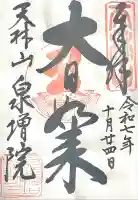 奉拝
令和七年
十月廿四日
大日如来
天林山
泉増院